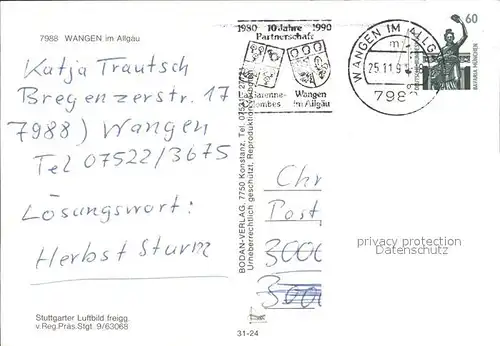 7988 WANGEN im Allgäu
Katja Trautsch
Bregenzerstr. 17
7988) Wangen
Tel 07522/3675
Lösungswort:
Herbst Sturm
Stuttgarter Luftbild freigg.
v. Reg.Präs.Stgt. 9/63068
1980 10 Jahre 1990
Partnerschaft
La Garenne- Wangen
Colombes im Allgäu
WANGEN IM ALLG
25.11.9
798
60
BAVARIA MÜNCHEN
BODAN-VERLAG, 7750 Konstanz, Tel. 07531
Urheberrechtlich geschützt, Reproduktion verboten
31-24
Chr
Post
3000
3000
privacy protection
Datenschutz